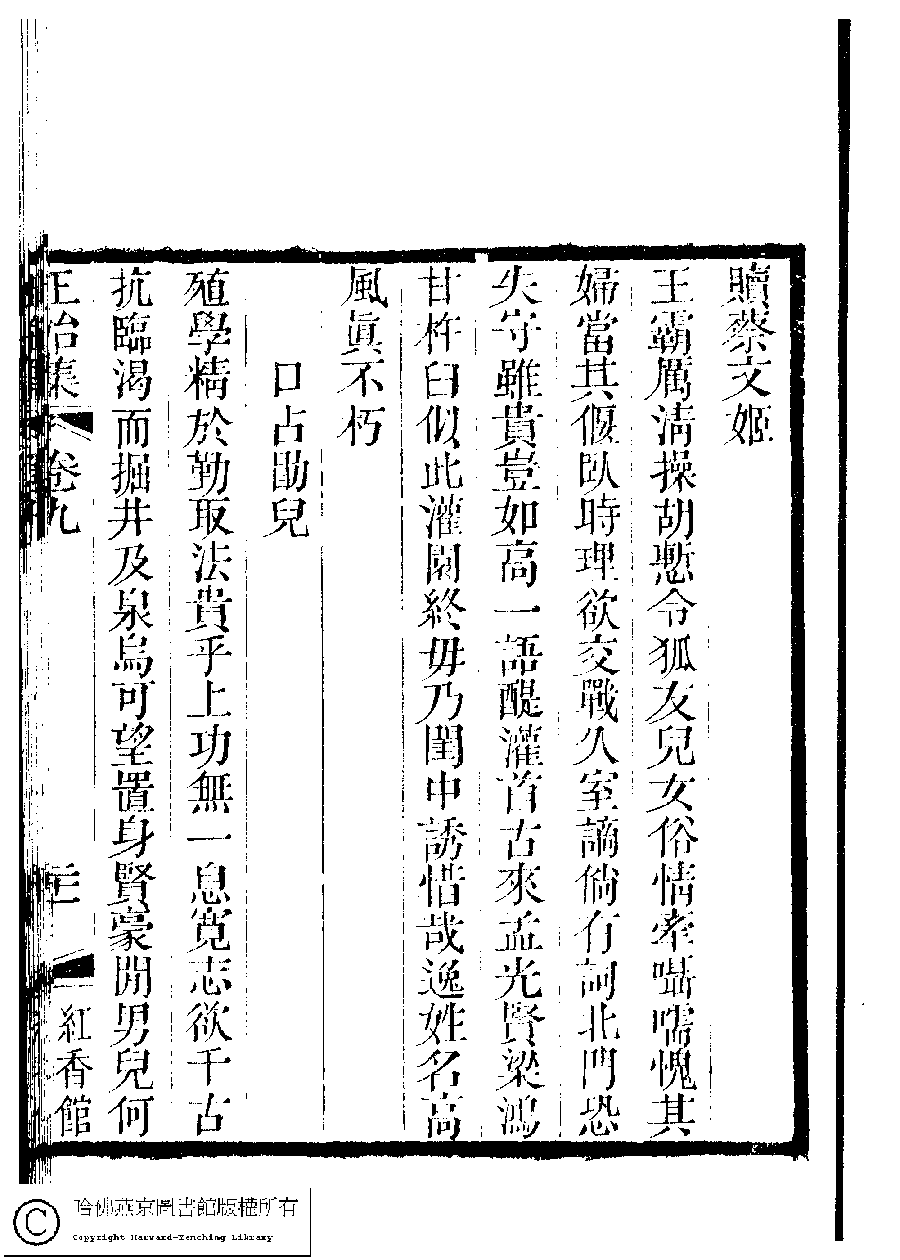 贖蔡文姬
王霸厲淸操胡慙令狐友兒女俗情牽囁嚅愧其
婦當其偃臥時理欲交戰久室謫倘有詞北門恐
失守雖貴豈如高一語醍灌首古來孟光賢梁鴻
甘杵臼似此灌園終毋乃閨中誘惜哉逸姓名高
風眞不朽
口占勖兒
殖學精於勤取法貴乎上功無一息寛志欲千古
抗臨渴而掘井及泉烏可望置身賢豪閒男兒何
怡集
卷九
紅香館
哈佛燕京圖書館版權所有
Copyright Harvard-Yenching Library